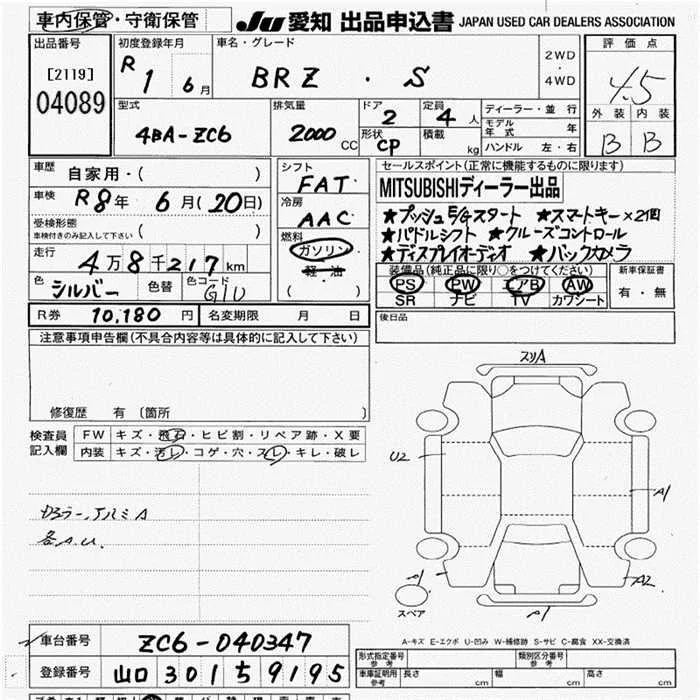 車内保管・守衛保管 JU 愛知 出品申込書 JAPAN USED CAR DEALERS ASSOCIATION
出品番号 初度登録年月 車名・グレード 評価点
[2119] R 1 6月 BRZ・S 2WD・4WD 4.5
04089
型式 排気量 ドア 定員 ディーラー・並行 外装 内装
4BA-ZC6 2000CC 2 4人 モデル年式 年 B B
形状 CP 積載 kg ハンドル 左・右
車歴 自家用・( ) シフト FAT セールスポイント(正常に機能するものに限ります)
車検 R8年 6月(20日) 冷房 AAC MITSUBISHIディーラー出品
受検形態 車検付きのみ記入して下さい ( ) 燃料 ★プッシュスタート ★スマートキー×2個
走行 4万8千217km ガソリン・軽・油 ★パドルシフト ★クルーズコントロール
色 シルバー 色替 色コード G1U ( ) ★ディスプレイオーディオ ★バックカメラ
装備品(純正品に限り○をつけてください) 新車保証書
PS PW エアB AW 有・無
SR ナビ TV カワシート
R券 10,180円 名変期限 月 日 後日品
注意事項申告欄(不具合内容等は具体的に記入して下さい)
修復歴 有 〔箇所 〕
検査員記入欄 FW キズ・飛石・ヒビ割・リペア跡・X要
内装 キズ・汚レ・コゲ・穴・スレ・キレ・破レ
スリA
U2
A1
アルミA
各A.U.
A1 A2
スペア A1
A-キズ E-エクボ U-凹み W-補修跡 S-サビ C-腐食 XX-交換済
車台番号 ZC6-040347
形式指定番号 参考 類別区分番号 参考
登録番号 山口 301 ち 9195
車庫証明用 参考 長さ cm 幅 cm 高さ cm